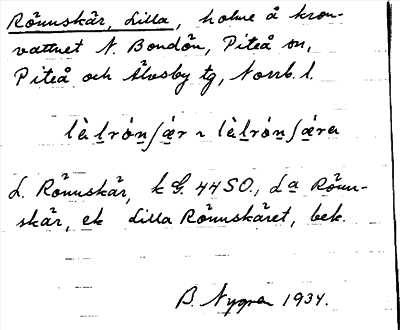 Rönnskär, Lilla, holme å kron-
vattnet N. Bondön, Piteå sn,
Piteå och Älvsby tg, Norrb. l.
lὰ lrónʃǽr ~ lὰlrónʃǽra
L. Rönnskär, k G. 44 SO., La Rönn-
skär, ek Lilla Rönnskäret, bek.
B. Nygren 1934.